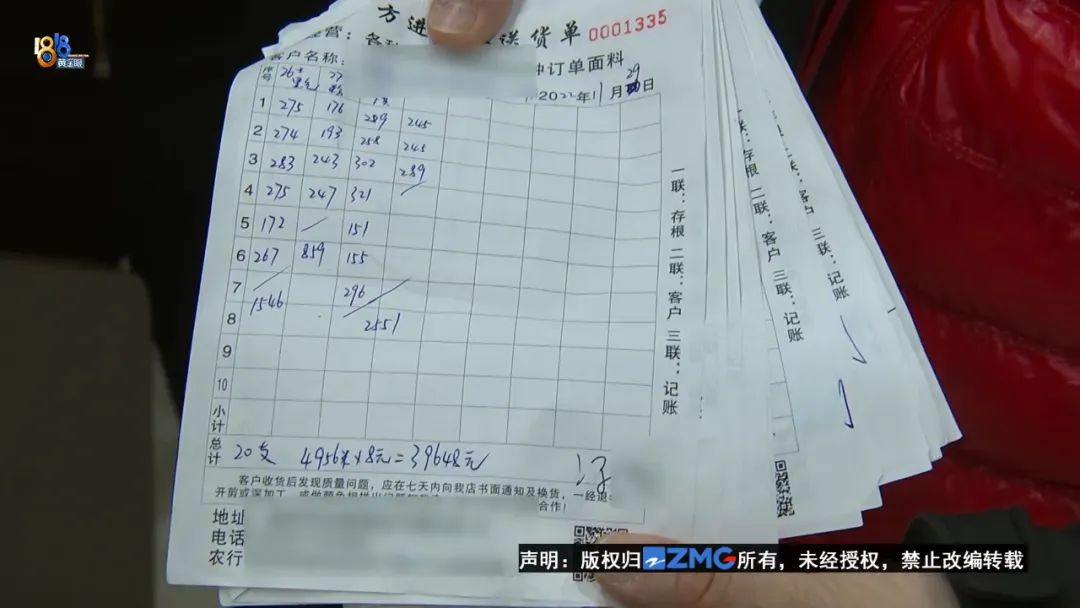 1818
黄金眼
方进 送货单 0001335
经营：各种
客户名称： 订单面料
2022年11月29日
序号 26# 27
1 275 176 289 245
2 274 193 258 245
3 283 243 302 289
4 275 247 321
5 172 151
6 267 859 155
7 1546 296
8 2551
9
10
小计
总计 20支 4956米×8元=39648元
客户收货后发现质量问题，应在七天内向我店书面通知及换货，一经
开剪或深加工
合作！
地址
电话
农行
一联：存根 二联：客户 三联：记账
二联：客户 三联：记账
三联：记账
声明：版权归ZMG所有，未经授权，禁止改编转载